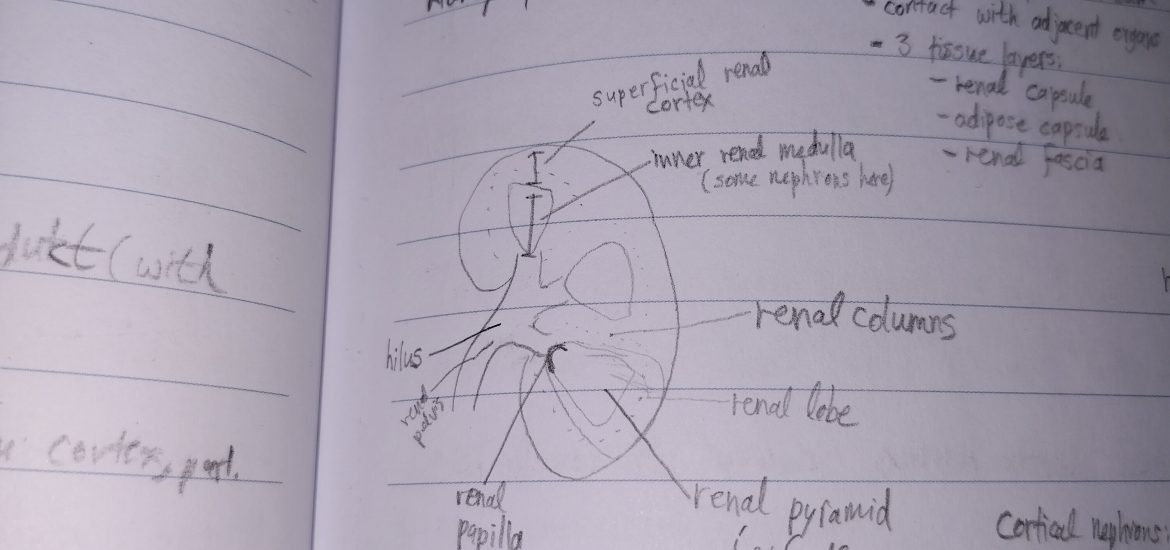 dukt (with
cortex, part.
contact with adjacent organs
- 3 tissue layers:
- renal capsule
- adipose capsule
- renal fascia
superficial renal
cortex
inner renal medulla
(some nephrons here)
renal columns
hilus
renal
pelvis
renal lobe
renal
papilla
renal pyramid
Cortical nephrons: